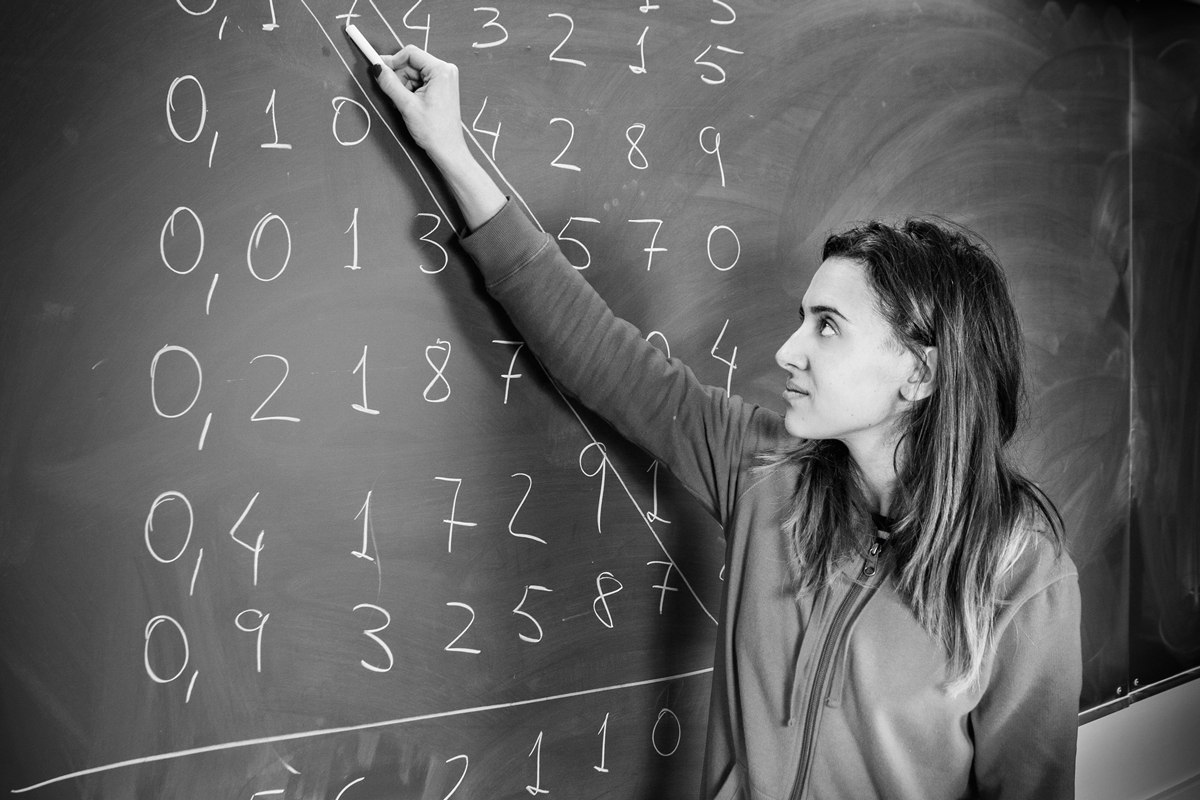 0,17432115
0,10 4289
0,013 570
0,2187 4
0,417291
0,932587
2110